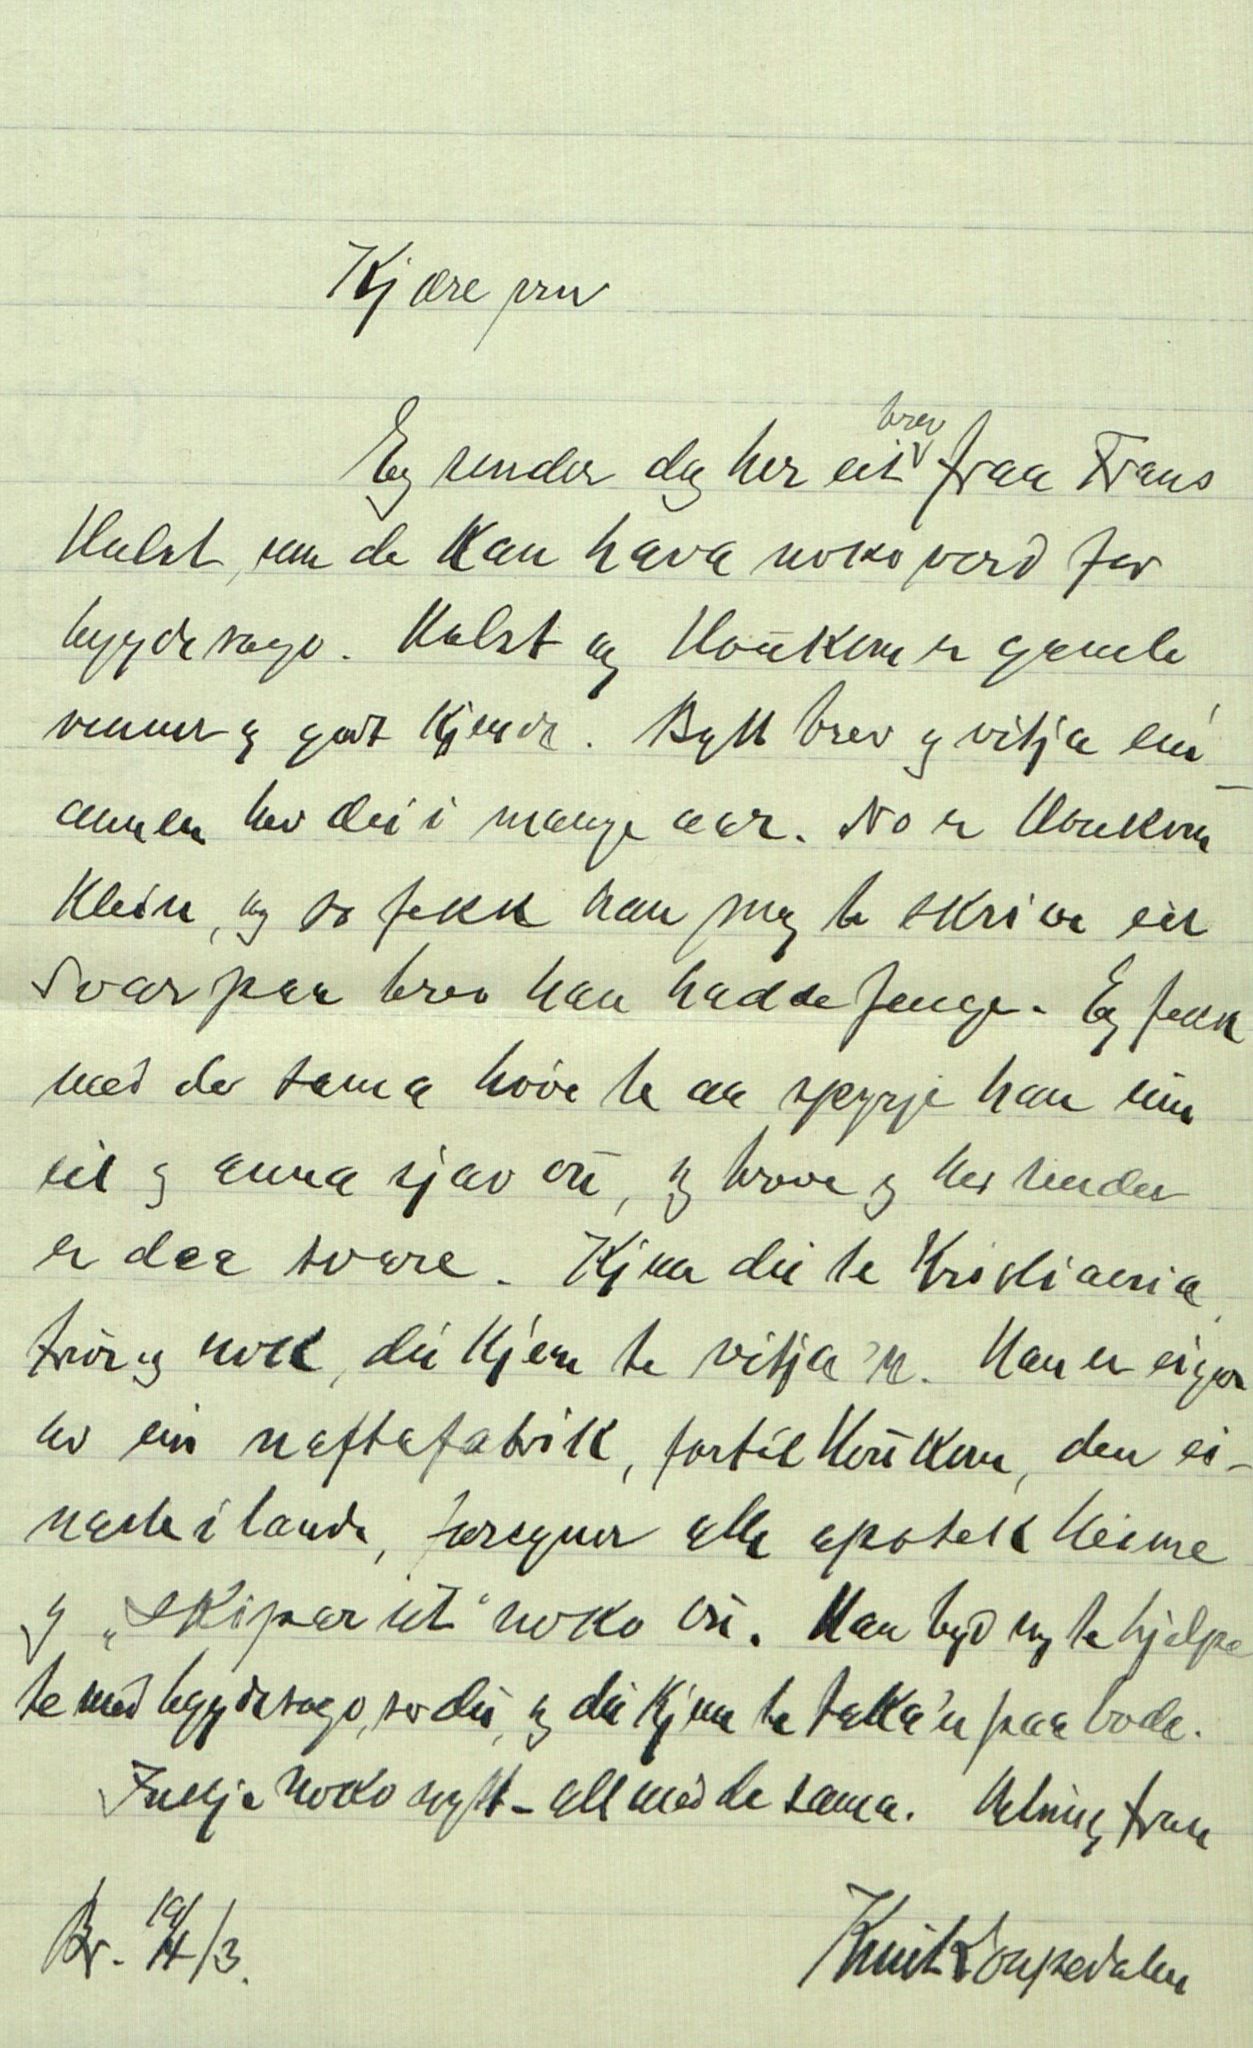 Kjære
Eg sender deg her eit brev fraa Frans
Hulst, som de kan hava noko verd for
bygdesogo. Hulst og Houkom er gamle
venner og godt kjende. Bytt brev og vitja ein-
annen hev dei i mange aar. No er Houkom
klein, og so fekk han meg te skrive eit
svar paa brev han hadde fenge. Eg fekk
med de sama høve te aa spyrje han um
eit og anna sjøv òu, og breve eg her sender
er daa svare. Kjem du te Kristiania,
trur eg nok, du kjem te vitja'n. Han er eigar
av ein naftafabrik, fortel Houkom, den ei-
naste i lande, forsyner alle apotek heime
og „skipar ut" noko òu. Han byd seg te hjelpe
te med bygdesogo, ser du, og du kjem te taka'n paa orde.
Inkje noko nytt – allt med de sama. Helsing fraa
Br. 19/3.
Knut Loupedalen